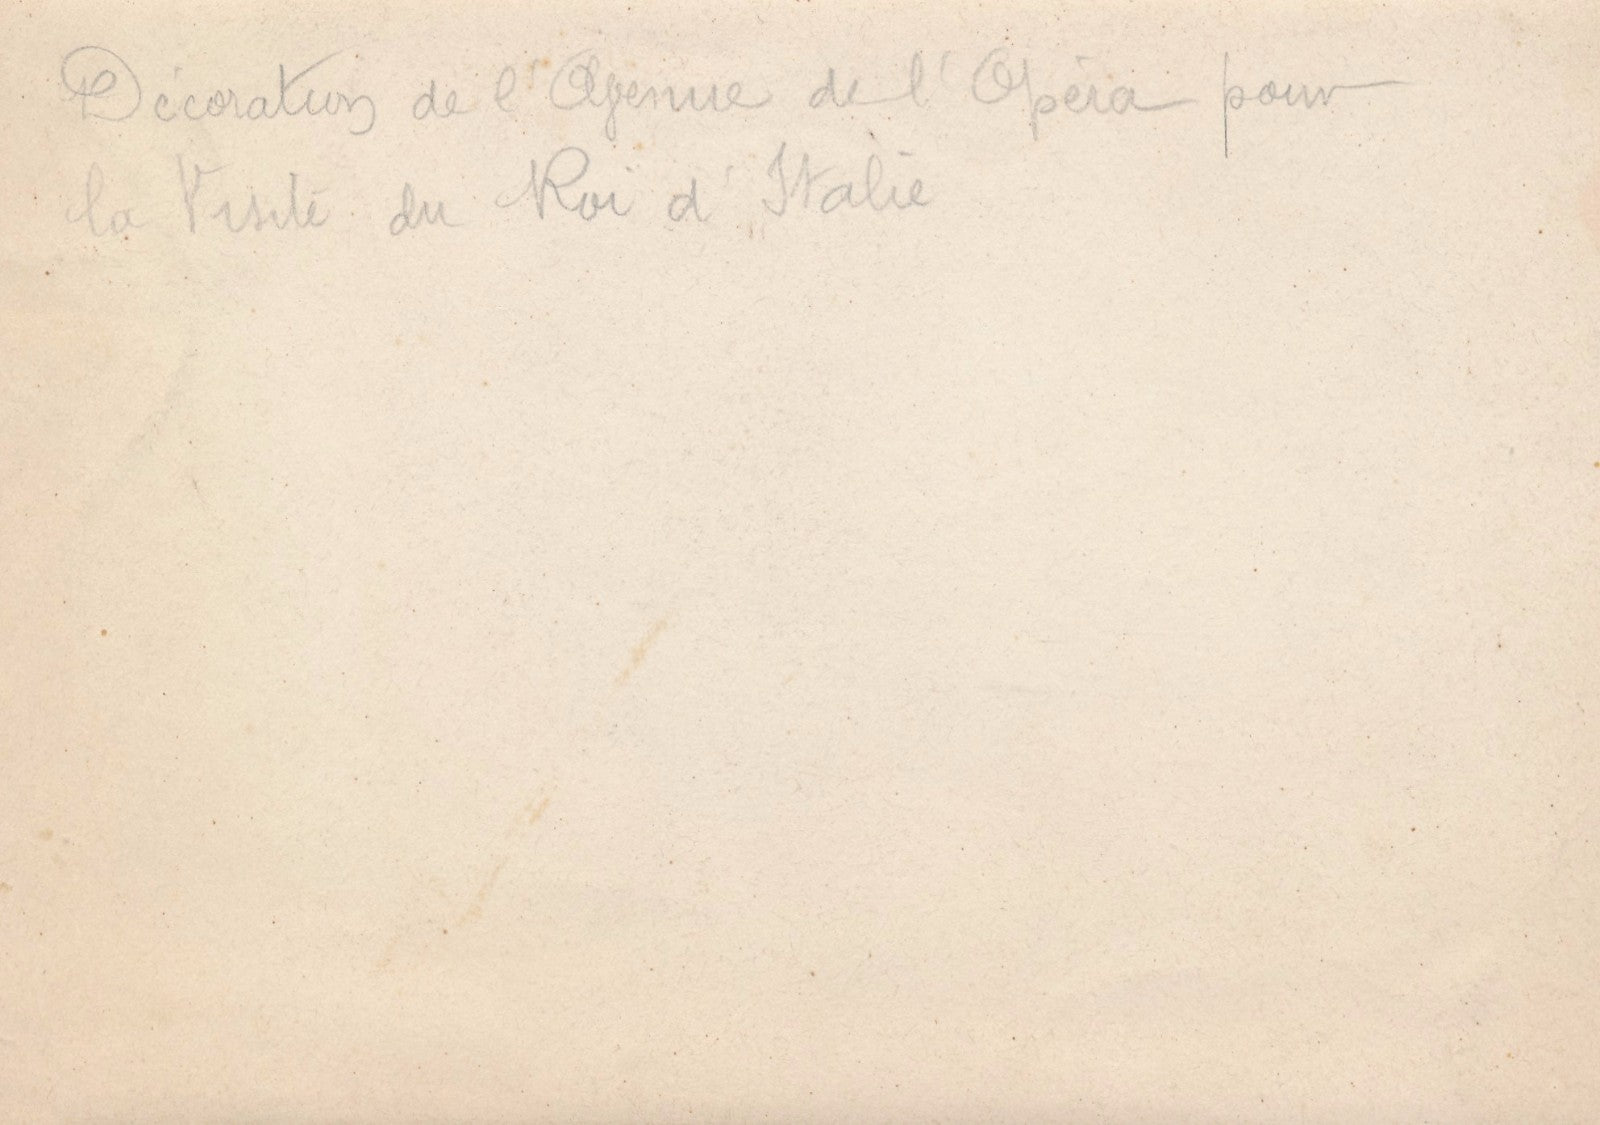 Décoration de l'Avenue de l'Opéra pour
la Visite du Roi d'Italie